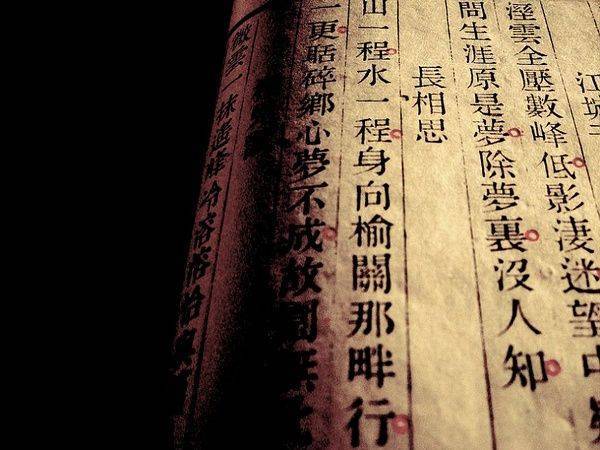 江城
溼雲全壓數峰低影淒迷望中
問生涯原是夢除夢裏沒人知
長相思
山一程水一程身向榆關那畔行
一更聒碎鄉心夢不成故園無
微雲一抹遙峰冷溶溶恰與